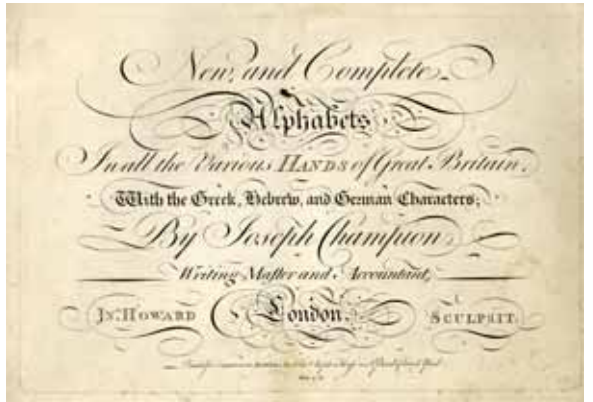 New, and Complete
Alphabets
In all the Various HANDS of Great Britain,
With the Greek, Hebrew, and German Characters;
By Joseph Champion,
Writing Master and Accountant,
Jn. HOWARD London. SCULPSIT